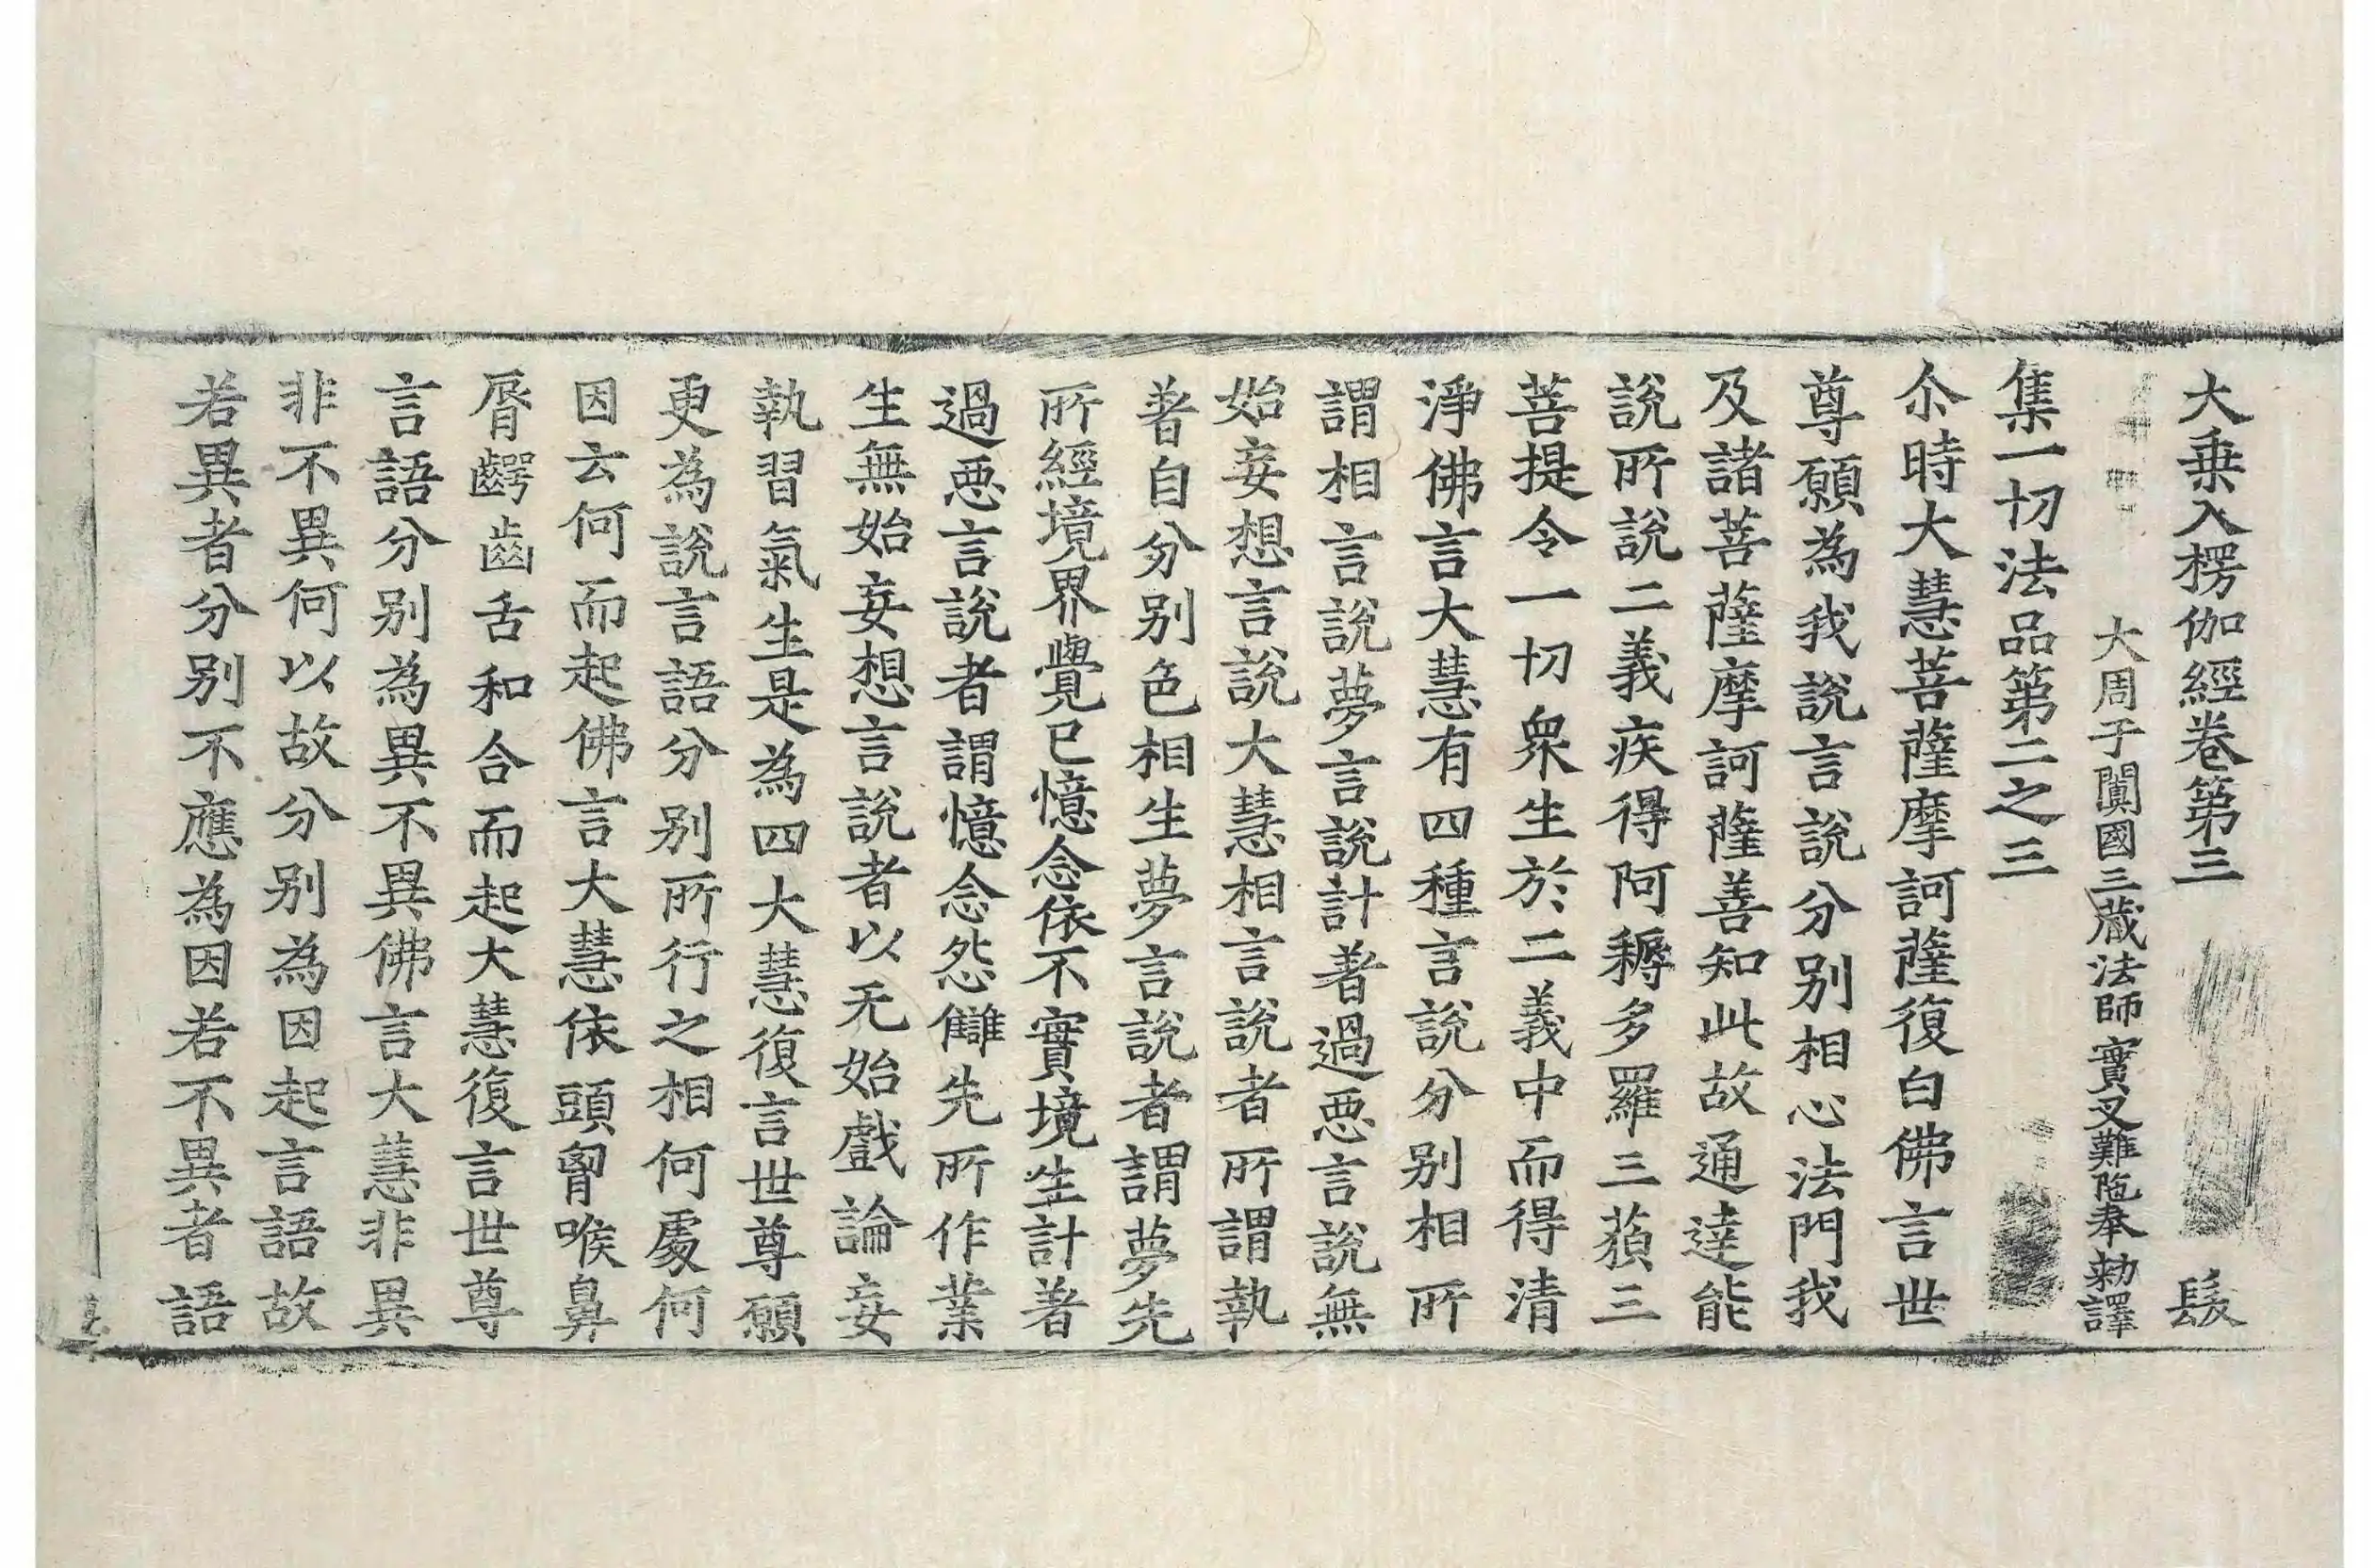 大乗入楞伽經卷第三 髮
大周于闐國三藏法師實叉難陁奉勑譯
集一切法品第二之三
尒時大慧菩薩摩訶薩復白佛言世
尊願為我說言說分別相心法門我
及諸菩薩摩訶薩善知此故通達能
說所說二義疾得阿耨多羅三藐三
菩提令一切衆生於二義中而得清
淨佛言大慧有四種言說分別相所
謂相言說夢言說計著過惡言說無
始妄想言說大慧相言說者所謂執
著自分別色相生夢言說者謂夢先
所經境界覺已憶念依不實境生計著
過惡言說者謂憶念怨讎先所作業
生無始妄想言說者以无始戲論妄
執習氣生是為四大慧復言世尊願
更為說言語分別所行之相何處何
因云何而起佛言大慧依頭胷喉鼻
脣齶齒舌和合而起大慧復言世尊
言語分別為異不異佛言大慧非異
非不異何以故分別為因起言語故
若異者分別不應為因若不異者語